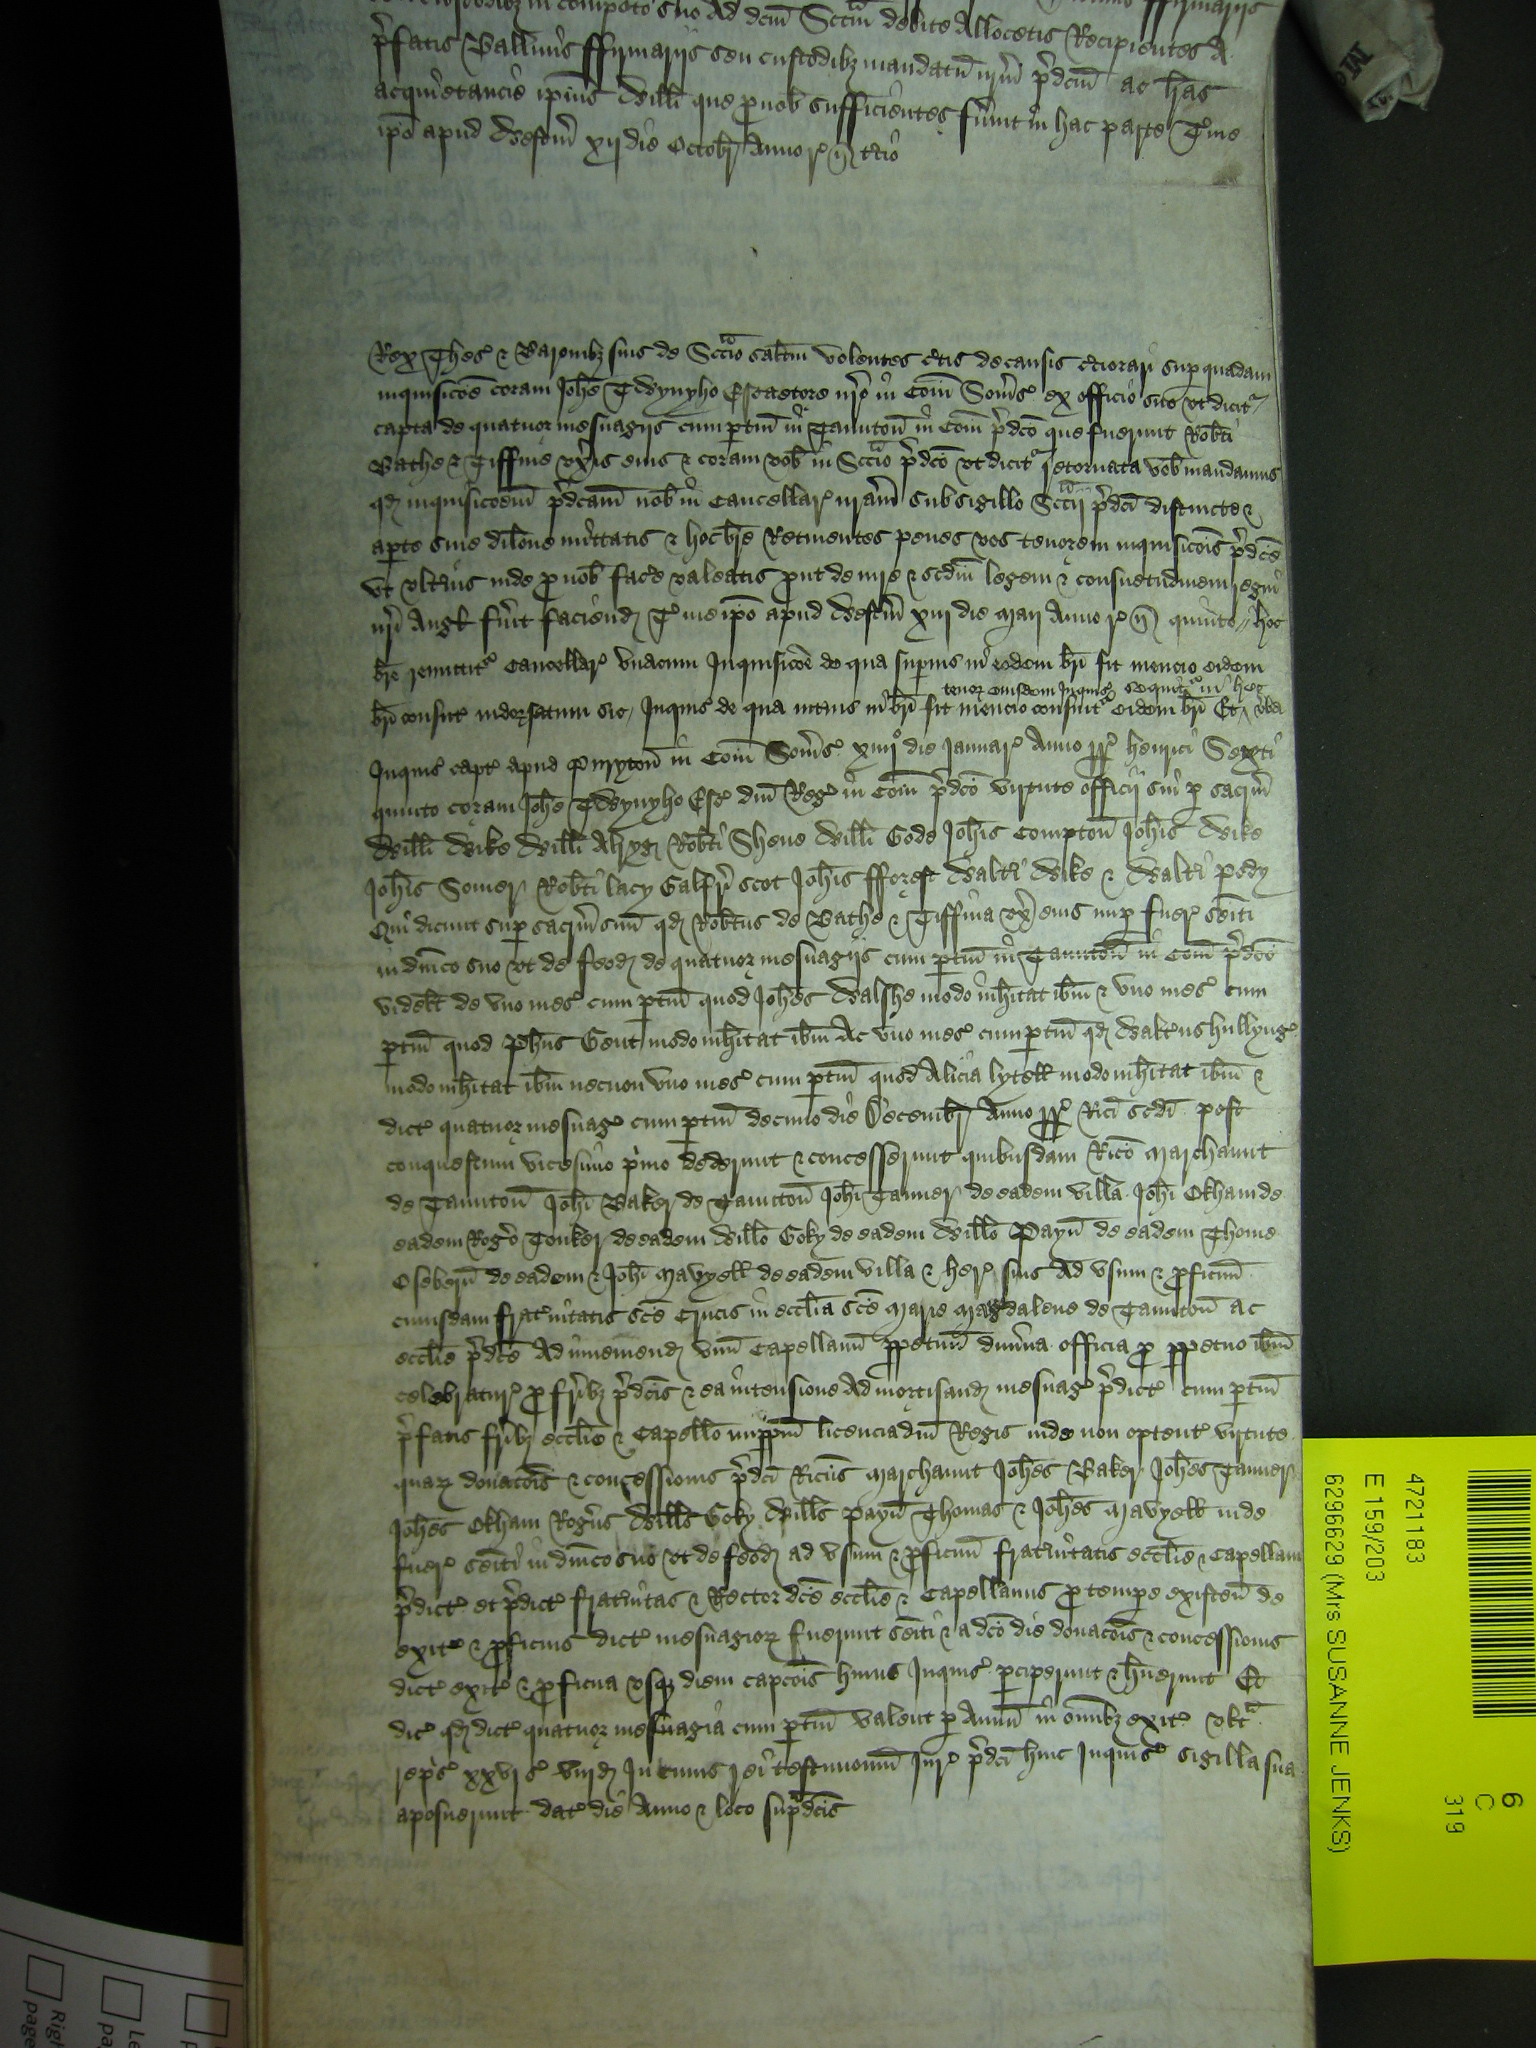 p̃fatis Ballivis ffirmarijs seu custodibȝ mandatũ nrm̃ p̃dcm̃ ac lr̃as
acquietancie ip̃ius Willi que p nob̃ sufficientes fũint in hac parte T me
ip̃o apud Westm̃ xij die Octobr̃ Anno r̃ n̄ tcio
Rex Thes̃ & Baronibȝ suis de Sccio saltm̃ Volentes c̃tis de causis c̃tiorari sup quadam
inquisicõe coram Joh̃e Twynyho Escaetore nr̃o in Com̃ Som̃s ex officio suo vt dicit̃
capta de quatuor mesuagijs cum ptin̄ in Tauntoñ in Com̃ p̃dco que fuerunt Rob̃ti
Bathe & Tiffine vx̃is eius & coram vob̃ in Sccio p̃dco vt dicit̃ retornata vob̃ mandamus
qd̃ inquisicoem̃ p̃dcam̃ nob̃ in Cancellar̃ nram̃ sub sigillo Sccij p̃dci distincte &
apte sine dilone mittatis & hoc br̃e Retinentes penes vos tenorem inquisicois p̃dce
vt vlt̃ius inde p nob̃ fac̃e valeatis put de iure & scdm̃ legem & consuetudinem regni
nr̃i Angl̃ fũit faciend̃ T me ip̃o apud Westm̃ xiij die Maij Anno r̃ n̄ quinto // hoc
br̃e remittit̃ Cancellar̃ vnacum Inquisicõe de qua supius in eodem br̃i fit mencio eidem
tenor eiusdem Inquis̃ sequit̃ in hec
br̃i consut̃ indorsatum sic / Inquis̃ de qua intus in br̃i fit mencio consuit̃ eidem br̃i Et / vba
Inquis̃ capt̃ apud Purytoñ in Com̃ Som̃s xiiij° die Januar̃ Anno rr̃ Henrici Sexti
quinto coram Joh̃e Twynyho Esc̃ dñi Reg̃ in Com̃ p̃dco virtute officij sui p sacrm̃
Willi Wike Willi Rob̃ti Shene Willi Gode Joh̃is Comptoñ Joh̃is Wike
Joh̃is Somer Rob̃ti lacy Galfr̃i Scot Joh̃is fforest Walt̃i Wike & Walt̃i pedy
Qui dicunt sup sacrm̃ suũ qd̃ Rob̃tus de Bathe & Tiffina vx̃ eius nup fuer̃ sẽiti
in dñico suo vt de feod̃ de quatuor mesuagijs cum ptin̄ in Tauntoñ in Com̃ p̃dco
videlt̃ de vno mes̃ cum ptin̄ quod Joh̃es Walshe modo inh̃itat ibm̃ & vno mes̃ cum
ptin̄ quod Ph̃us Gent modo inh̃itat ibm̃ Ac vno mes̃ cum ptin̄ qd̃ Walt̃us hullyng̃
modo inh̃itat ibm̃ necnon vno mes̃ cum ptin̄ quod Alicia lytell modo inh̃itat ibm̃ &
dict̃ quatuor mesuag̃ cum ptin̄ decimo die Decembr̃ Anno rr̃ Rici scdi post
conquestum vicesimo p̃mo dederunt & concesserunt quibusdam Rico Marchaunt
de Tauntoñ Joh̃i Baker de Tauntoñ Joh̃i Tanner de eadem villa Joh̃i Okham de
eadem Rog̃o Touker de eadem Willo Goky de eadem Willo Payñ de eadem Thome
Oseberñ de eadem & Joh̃i Mavyell de eadem villa & her̃ suis Ad vsum & pficuũ
cuiusdam frat̃nitatis sc̃e Crucis in eccl̃ia sc̃e Marie Magdalene de Tauntoñ ac
eccl̃ie p̃dce Ad inueniend̃ vnũ Capellanũ ppetuũ diuina officia p ppetuo ibm̃
celebratur̃ p fr̃ibȝ p̃dcis & ea intensione Admortisand̃ mesuag̃ p̃dict̃ cum ptin̄
p̃fatis fr̃ibȝ eccl̃ie & Capello imppm̃ licencia dñi Regis inde non optent̃ virtute
quar̃ donacois & concessionis p̃dci Ricus Marchaunt Joh̃es Baker Joh̃es Tanner
Joh̃es Okham Rog̃us Wills Goky Wills Payñ Thomas & Joh̃es Mavyell inde
fuer̃ sẽiti in dñico suo vt de feod̃ ad vsum & pficuũ frat̃nitatis eccl̃ie & Capellani
p̃dict̃ et p̃dict̃ frat̃nitas & Rector dc̃e eccl̃ie & Capellanus p tempe existeñ de
exit̃ & pficuis dict̃ mesuagior̃ fuerunt sẽiti & a dco die donacois & concessionis
dict̃ exit̃ & pficua vsqȝ diem capcois huius Inquis̃ pciperunt & h̃uerunt Et
dic̃ qd̃ dict̃ quatuor mesuagia cum ptin̄ valent p Annũ in omnibȝ exit̃ vlt̃
repis̃ xxvj s̃ viij d̃ In cuius rei testimoniũ Jur̃ p̃dci huic Inquis̃ sigilla sua
aposuerunt dat̃ die Anno & loco sup̃dcis
4721183
E 159/203
6296629 (Mrs SUSANNE JENKS)
6
C
319